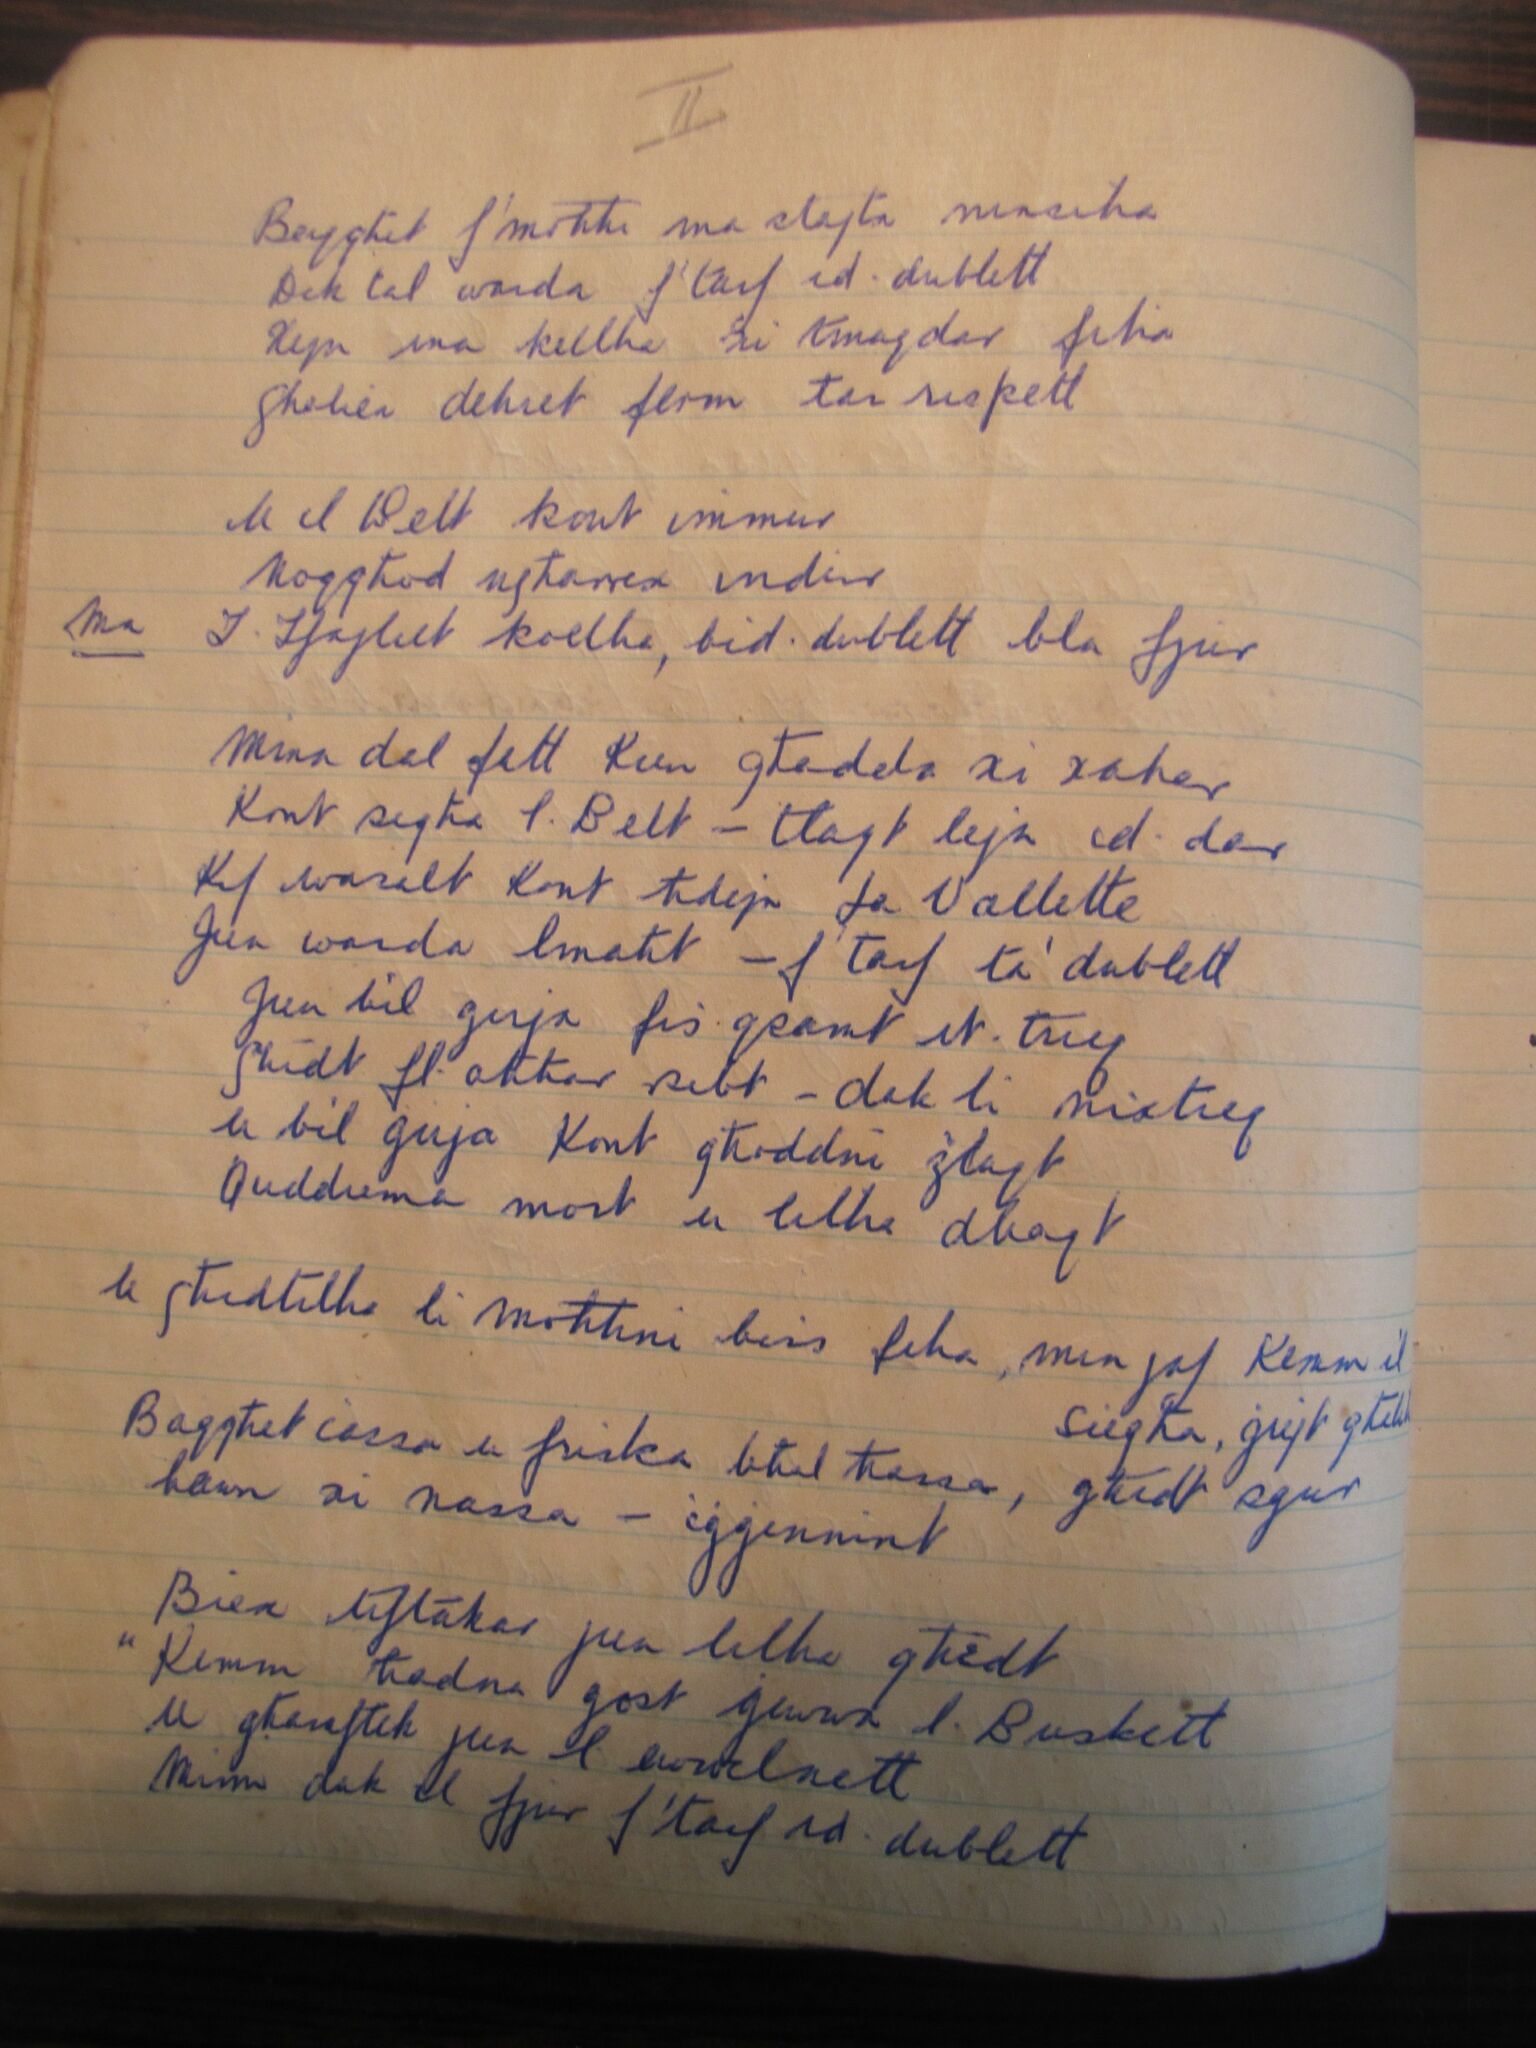 II
Baqghet f'mohhi ma stajta ninsiha
Dik tal warda f'tarf id-dublett
Xejn ma kellha xi tmaqdar fiha
Ghaliex dehret flom tar-rispett
U l Belt kont immur
Noqghod ngharrex indur
Ma I. Xfajliet kollha, bid-dublett bla fjur
Minn dal fatt kien ghadda xi xahar
Kont sieghа l-Belt - tlaqt lejn id-dar
Kif wasalt kont hdejn Ja Vallette
Jien warda lmaht - f'tarf ta' dublett
Jien bil girja fis qsamt it-triq
Ghidt fl-ahhar sibt - dak li nixtieq
U bil girja kont ghoddni żlaqt
Quddiema mort u lilha dhaqt
U ghedtilha li mohhni biss fiha, minn jaf kemm il
siegha, ġrejt ghalik
Baqghet iassa u friska bhal hassa, ghidt sgur
hawn xi nassa - iġġennint
Biex tiftakar jien lilha ghedt
"Kemm hadna gost ġewwa l-Buskett
U gharaftek jien l ewwelnett
Minn dak il fjur f'tarf id-dublett